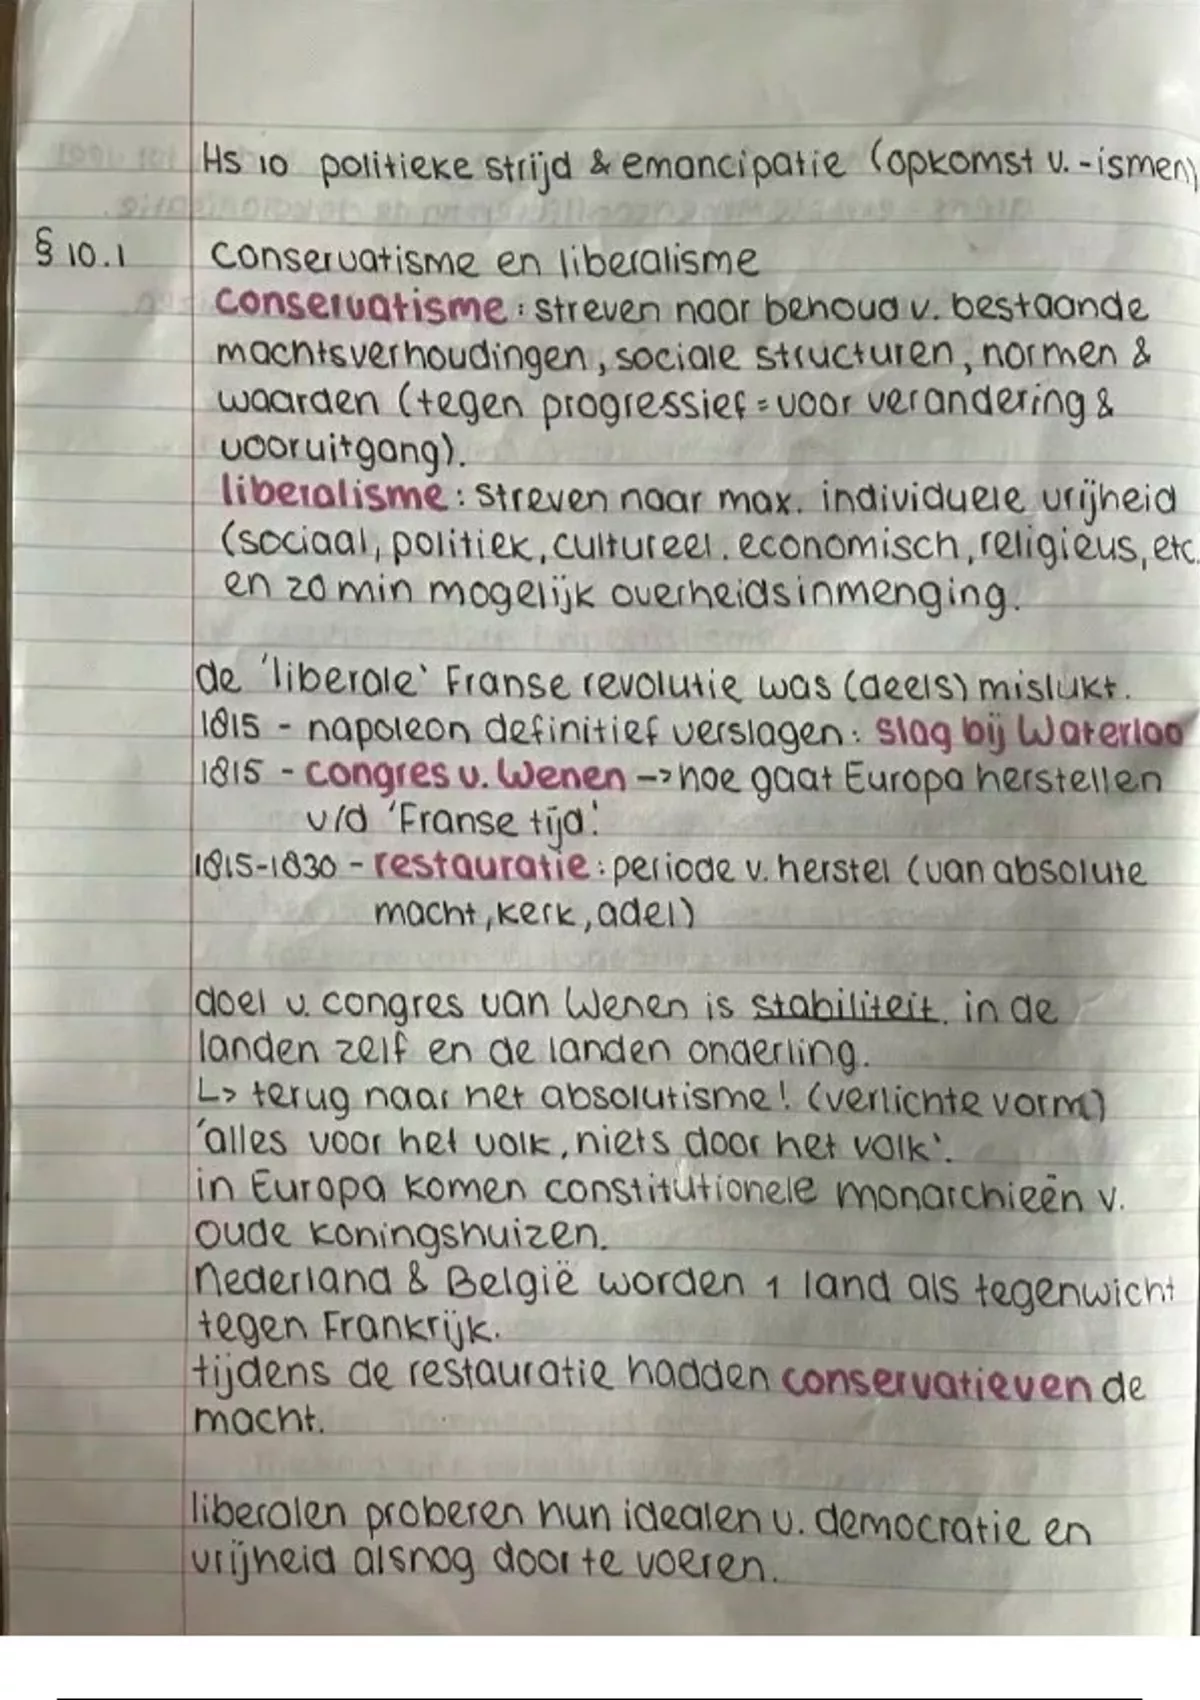 Hs 10 politieke strijd & emancipatie (opkomst v. -ismen)
§ 10.1 conservatisme en liberalisme
conservatisme: streven naar behoud v. bestaande
machtsverhoudingen, sociale structuren, normen &
waarden (tegen progressief = voor verandering &
vooruitgang).
liberalisme: streven naar max. individuele vrijheid
(sociaal, politiek, cultureel, economisch, religieus, etc.
en zo min mogelijk overheidsinmenging.
de 'liberale' Franse revolutie was (deels) mislukt.
1815 - napoleon definitief verslagen: slag bij Waterloo
1815 - congres v. Wenen -> hoe gaat Europa herstellen
v/d 'Franse tijd'.
1815-1830 - restauratie: periode v. herstel (van absolute
macht, kerk, adel)
doel v. congres van Wenen is stabiliteit. in de
landen zelf en de landen onderling.
L> terug naar het absolutisme! (verlichte vorm)
'alles voor het volk, niets door het volk'.
in Europa komen constitutionele monarchieën v.
oude koningshuizen.
Nederland & België worden 1 land als tegenwicht
tegen Frankrijk.
tijdens de restauratie hadden conservatieven de
macht.
liberalen proberen hun idealen v. democratie en
vrijheid alsnog door te voeren.